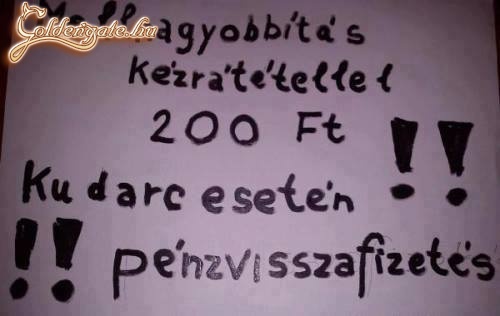 Goldengate.hu
Mellnagyobbítás
kézrátétellel
200 Ft !!
Kudarc esetén
!! pénzvisszafizetés